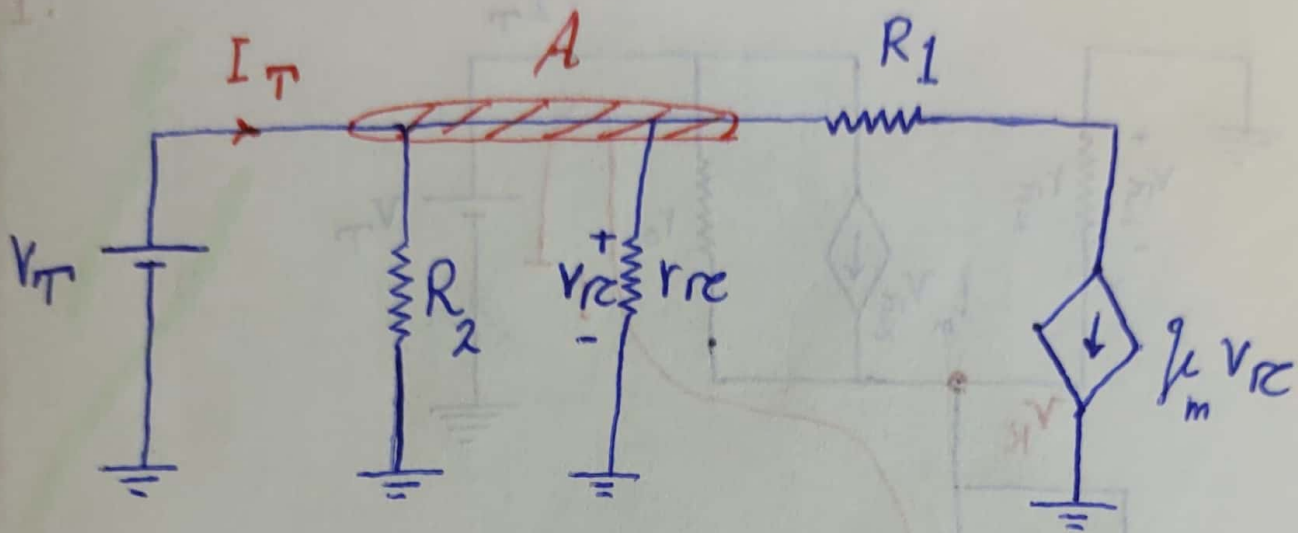 I_T
A
R1
V_T
R_2
+
v_π
-
r_π
g_m v_π